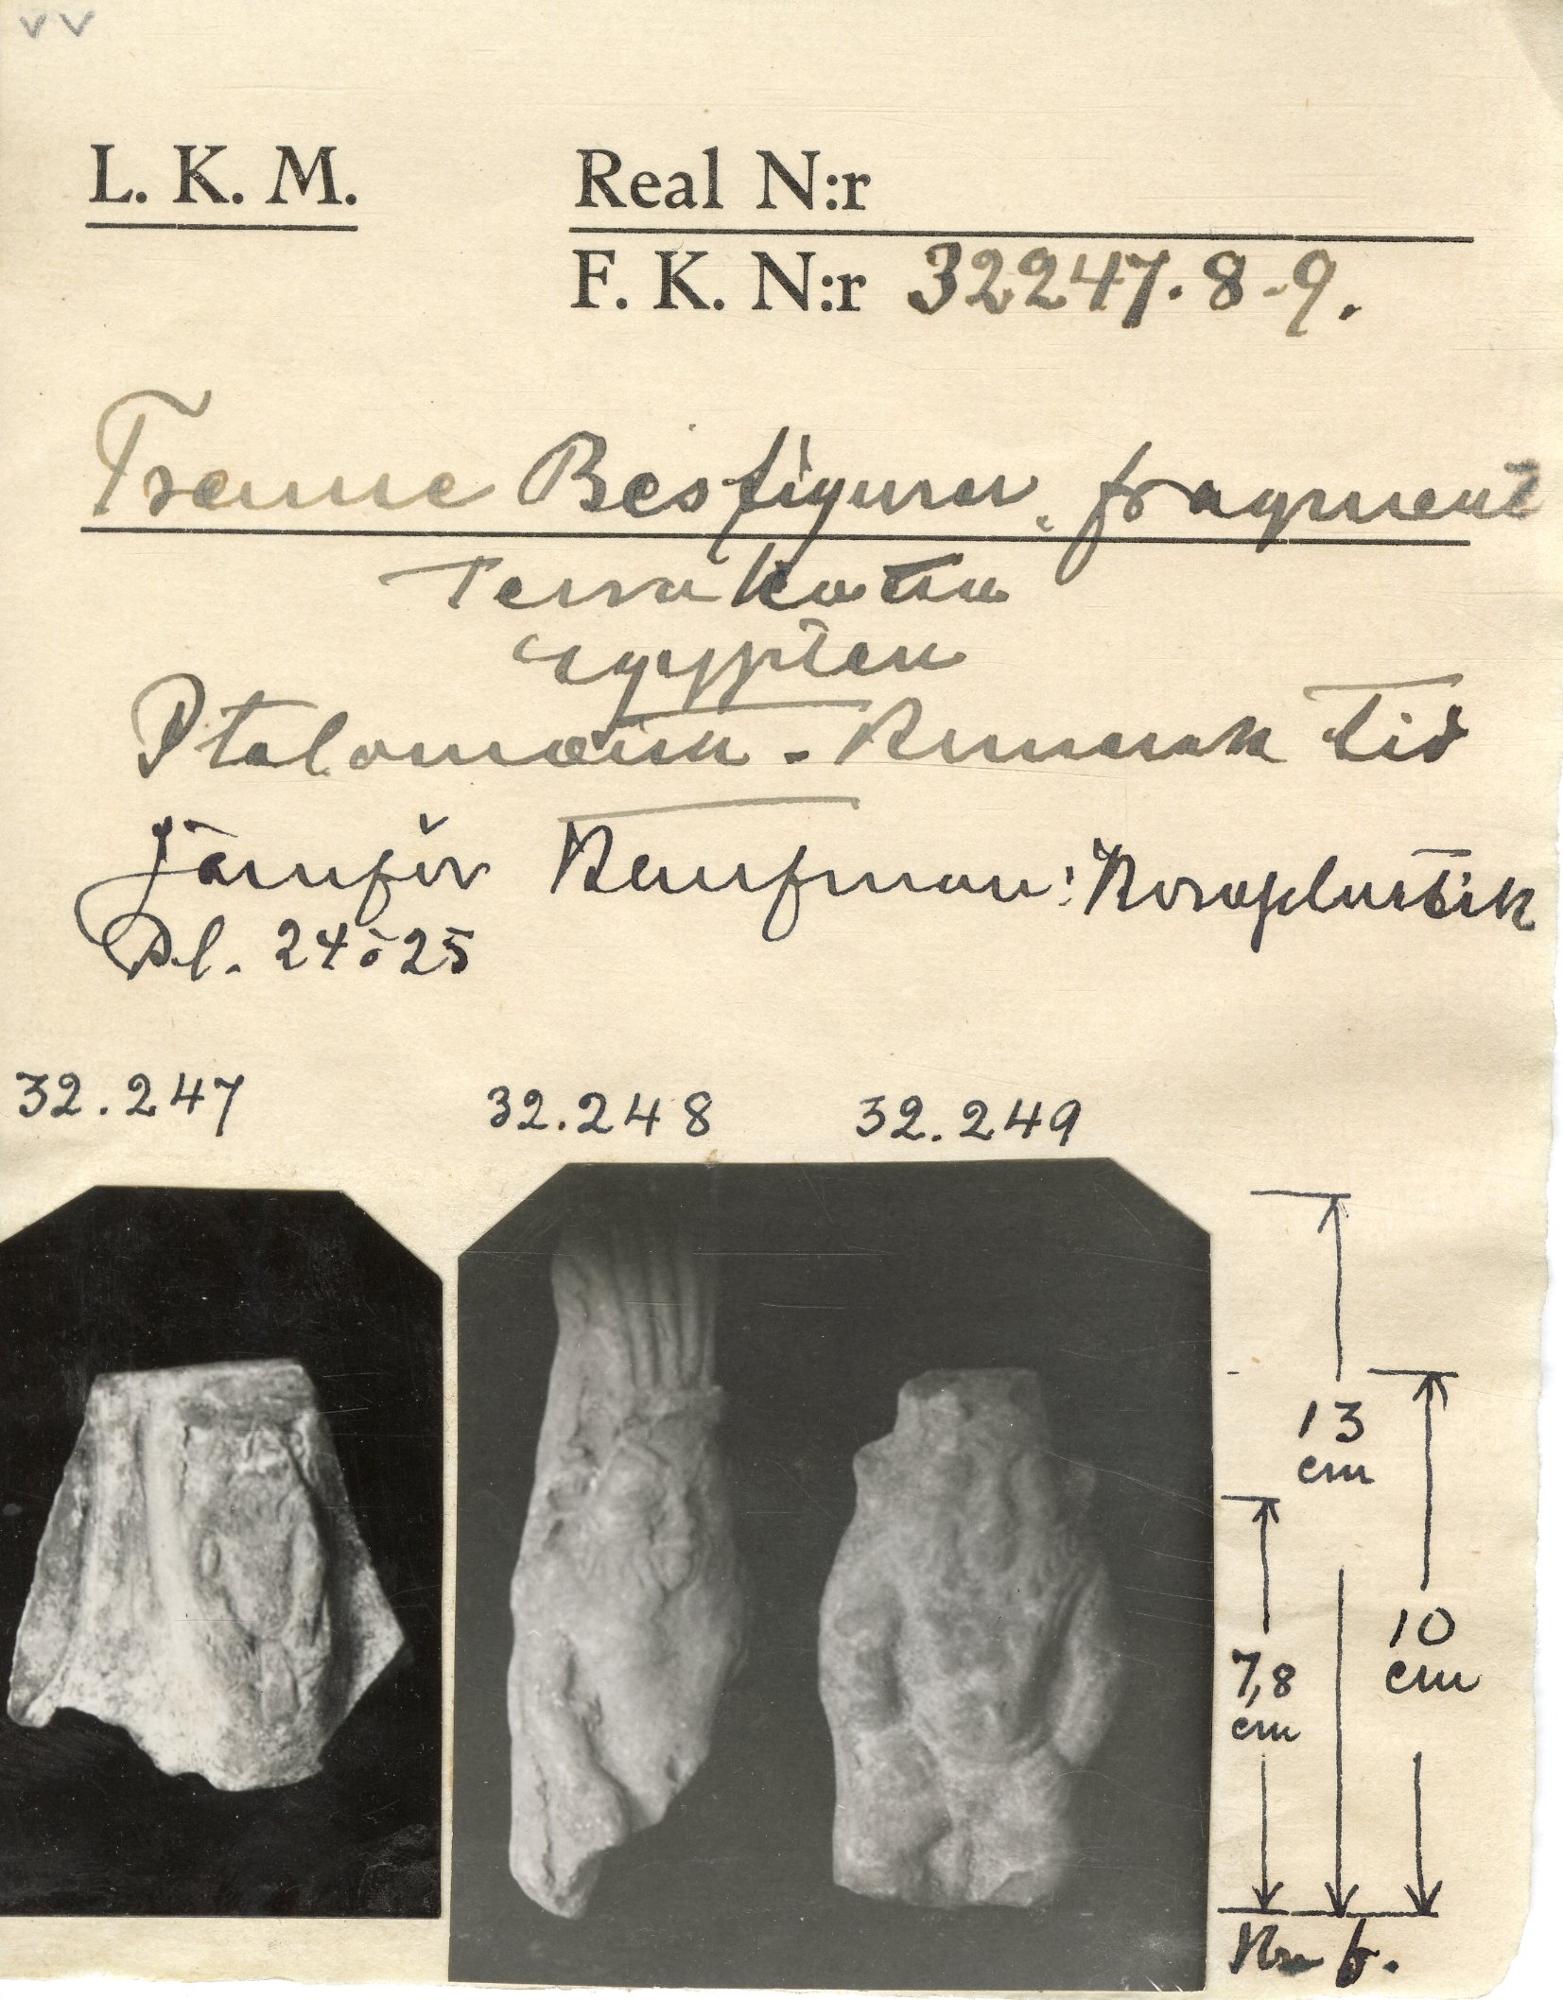 L. K. M.
Real N:r
F. K. N:r 32247.8-9.
Trenne Besfigurer, fragment
Terrakotta
Egypten
Ptolomæisk - Romersk tid
Jämför Kaufman: Koroplastik
Pl. 24 o 25
32.247
32.248
32.249
13
cm
10
cm
7,8
cm